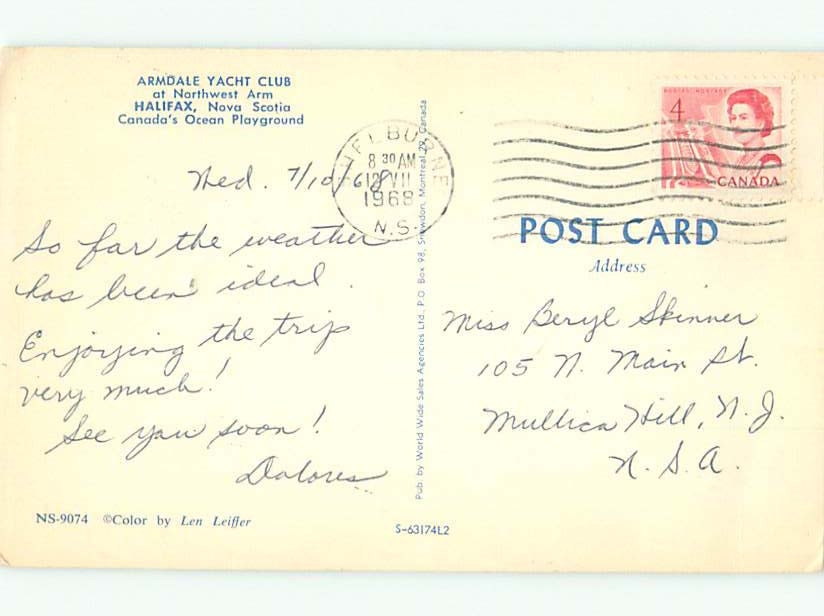 ARMDALE YACHT CLUB
at Northwest Arm
HALIFAX, Nova Scotia
Canada's Ocean Playground
Wed. 7/10/68
So far the weather
has been ideal.
Enjoying the trip
very much!
See you soon!
Dolores
NS-9074 ©Color by Len Leiffer
SHELBURNE
8 30 AM
12 VII
1968
N.S.
Pub. by World Wide Sales Agencies Ltd., P.O. Box 98, Snowdon, Montreal 29, Canada
S-63174L2
POSTES POSTAGE
4
CANADA
POST CARD
Address
Miss Beryl Skinner
105 N. Main St.
Mullica Hill, N.J.
U.S.A.